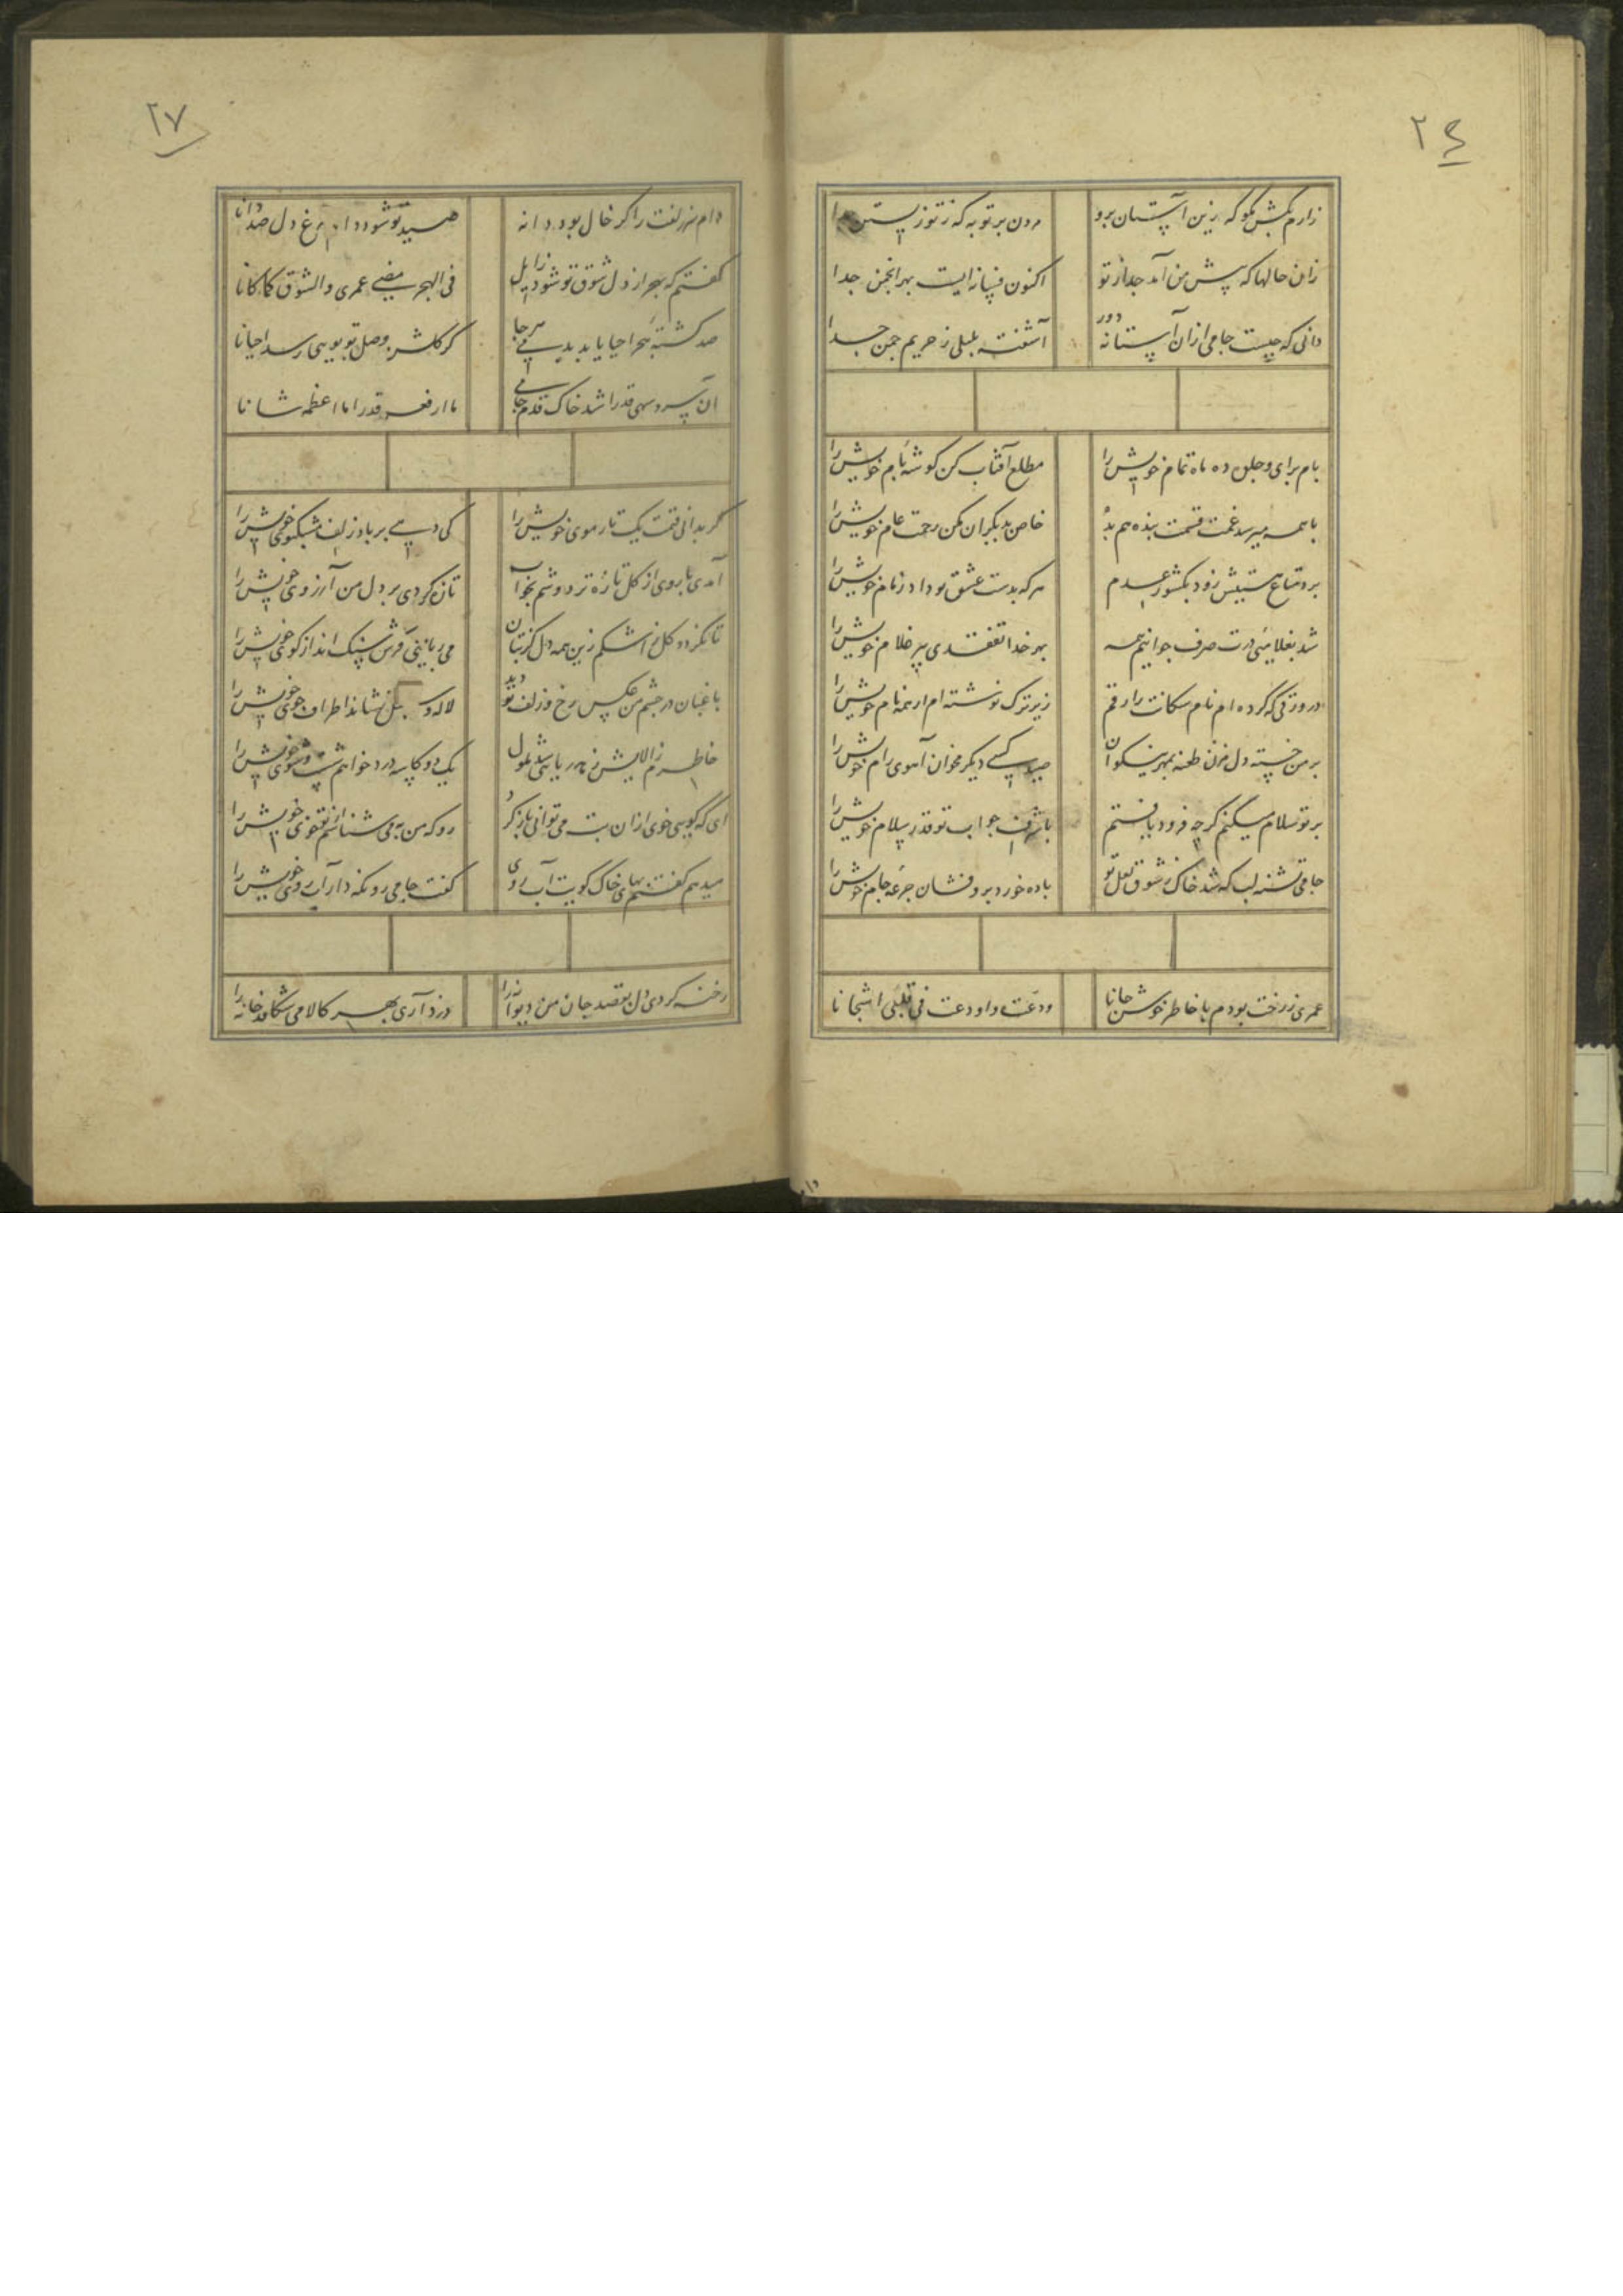 ۲۶
زارم بکش مگو که زین آستان برو مردن بر تو به که ز تو زیستن جدا
زان حالها که پیش من آمد جدا از تو اکنون فسانه ایست بهر انجمن جدا
دانی که چیست جامی ازان آستانه دور آشفته بلبلی ز حریم چمن جدا
بام برای و جلوه ده ماه تمام خویش را مطلع آفتاب کن گوشه بام خویش را
با همه میرسد غمت قسمت بنده هم بده خاص بدیگران مکن رحمت عام خویش را
برد متاع هستیش زود بکشور عدم هر که بدست عشق تو داد زمام خویش را
شد بغلامی درت صرف جوانیم همه بهر خدا تفقدی پیر غلام خویش را
در ورقی که کرده ام نام سگانت را رقم زیرترک نوشته ام از همه نام خویش را
بر من خسته دل مزن طعنه بمهر نیکوان صید کسی دیگر مخوان آهوی رام خویش را
بر تو سلام میکنم گرچه فرود یافتم با شرف جواب تو قدر سلام خویش را
جامی تشنه لب که شد خاک ز شوق لعل تو باده خور و برو فشان جرعه جام خویش را
عمری ز رخت بودم با خاطر خوش جانا ودعت و اودعت فی قلبی اشجانا
۲۷
دام سر زلفت را گر خال بود دانه صید تو شود دام مرغ دل صد دانا
گفتم که بهجر از دل شوق تو شود زایل فی الهجر مضی عمری والشوق کما کانا
صد کشته هجر احیا یابد بدمی هرجا گر گلشن وصل تو بویی رسد احیانا
آن سرو سهی قد را شد خاک قدم جامی ما ارفعه قدرا ما اعظمه شانا
گر بدانی قیمت یک تار موی خویش را کی دهی بر باد زلف مشکبوی خویش را
آمدی با روی از گل تازه تر دوشم بخواب تازه کردی بر دل من آرزوی خویش را
تا نگردد گل ز اشکم زین همه دل کز بتان می ربایی فرش سنگ انداز کوی خویش را
باغبان در چشم من عکس رخ و زلف تو دید لاله و سنبل نشاند اطراف جوی خویش را
خاطرم ز الایش زهد ریایی شد ملول یک دو کاسه درد خواهم شست و شوی خویش را
ای که گویی خوی ازان بت می توانی باز کرد رو که من به می شناسم از تو خوی خویش را
میدهم گفتم بهای خاک کویت آب روی گفت جامی رو نگه دار آب روی خویش را
رخنه کردی دل بقصد جان من دیوانه را دزد آری بهر کالا می شکافد خانه را